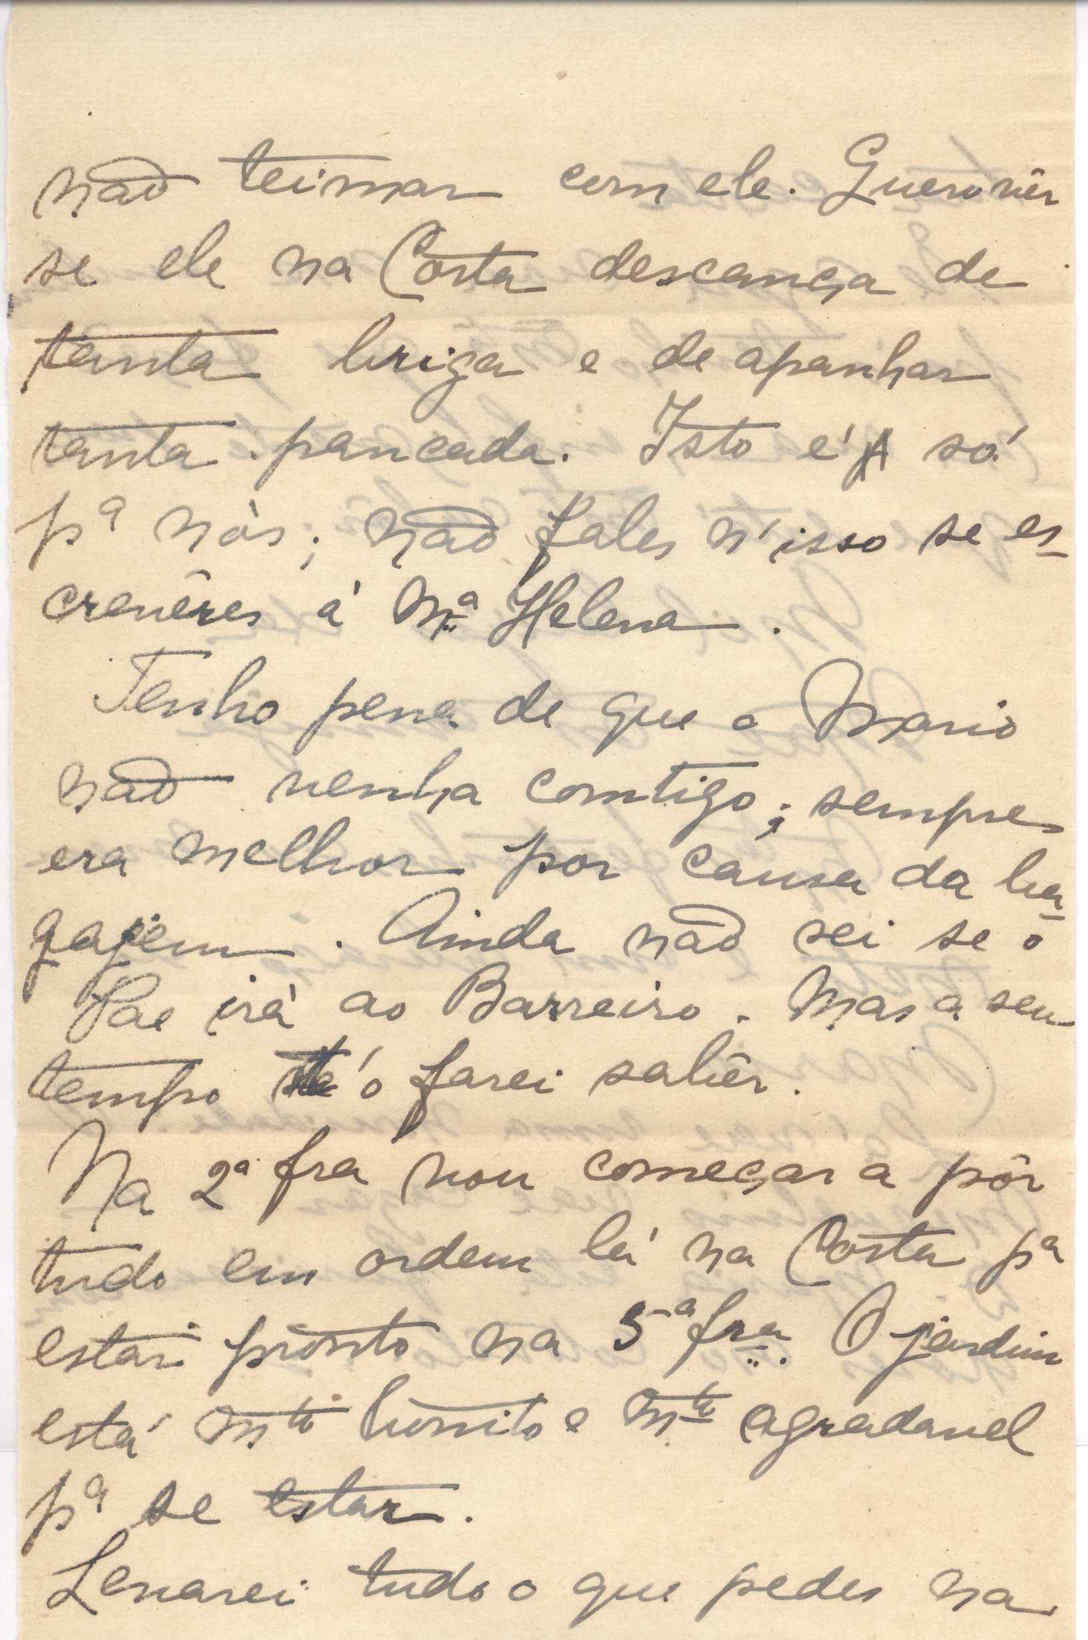 não teimar com ele. Quero vêr
se ele na Costa descança de
tanta briga e de apanhar
tanta pancada. Isto é só
pª nós; não fales n'isso se es-
crevêres á Mª Helena.
Tenho pena de que o Mario
não venha comtigo; sempre
era melhor por causa da ba-
gagem. Ainda não sei se o
Pae irá ao Barreiro. Mas a seu
tempo t'o farei sabêr.
Na 2ª fra vou começar a pôr
tudo em ordem lá na Costa pª
estar pronto na 5ª fra. O jardim
está mto bonito e mto agradavel
pª se estar.
Levarei tudo o que pedes na